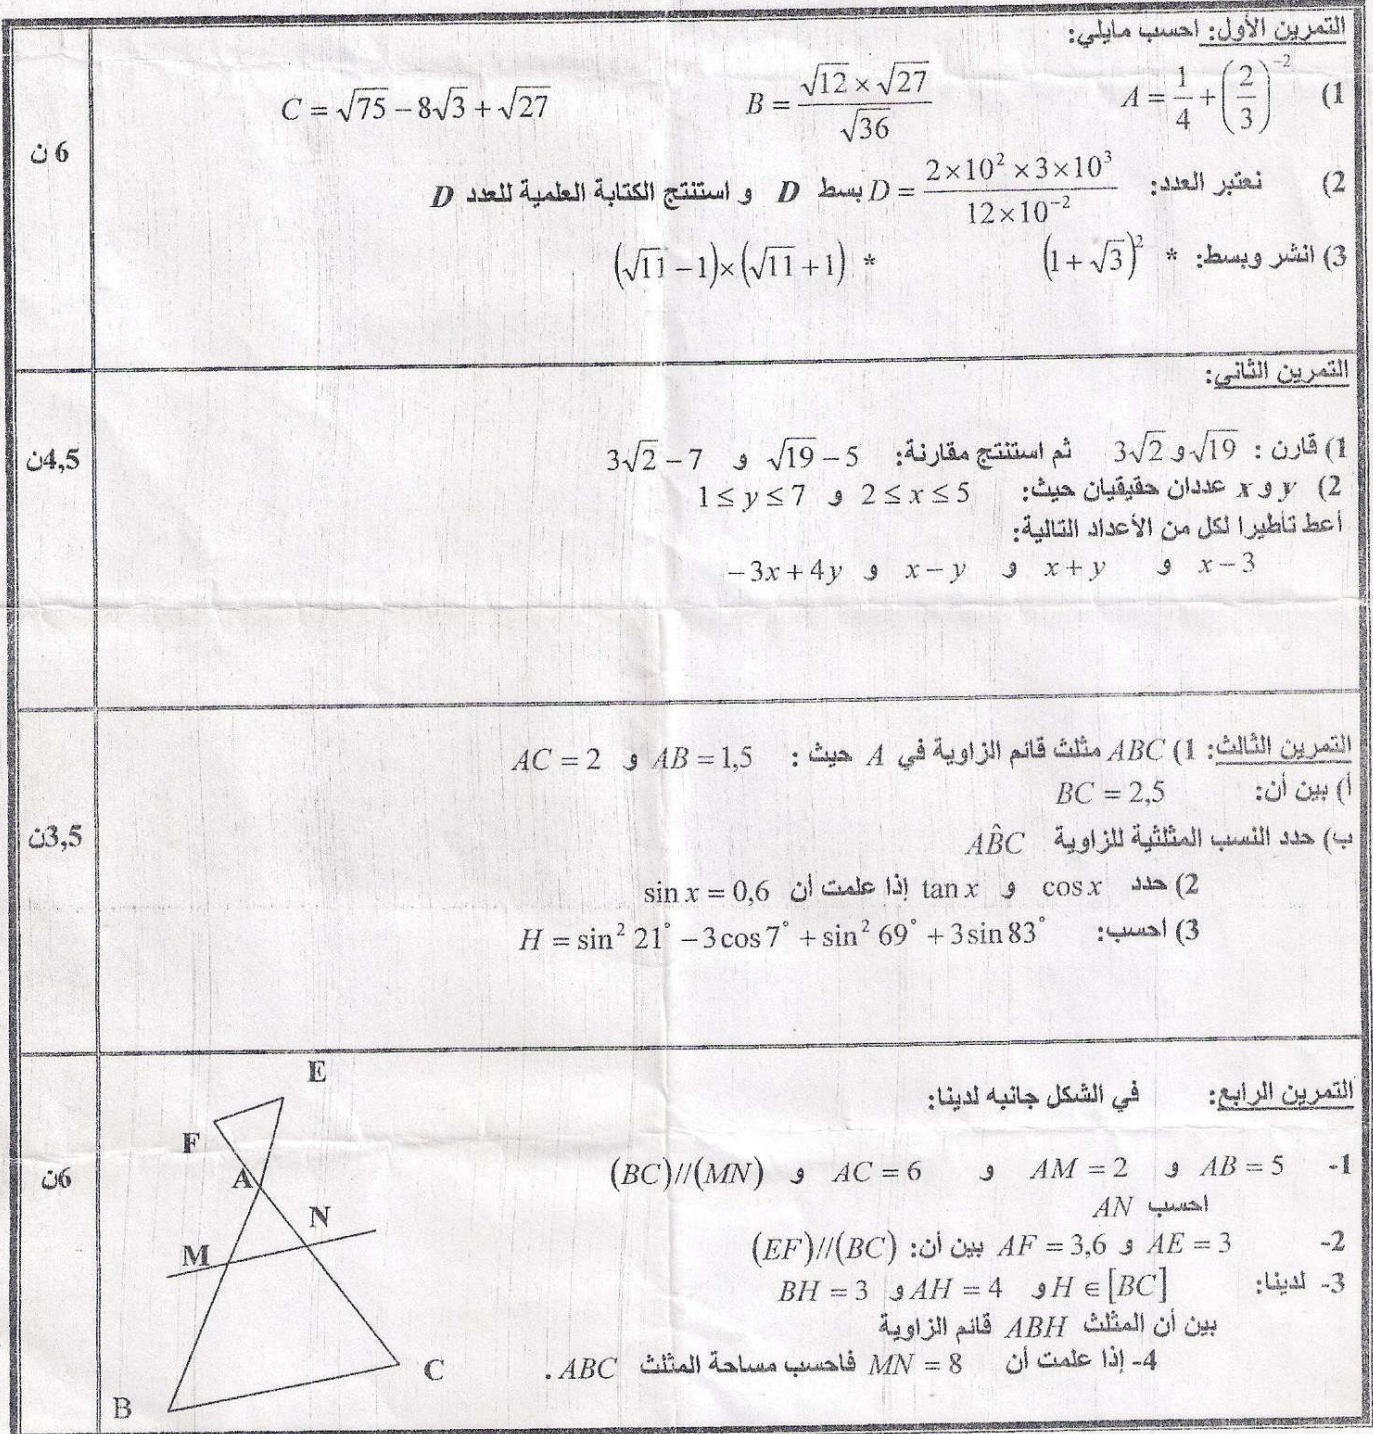 التمرين الأول: احسب مايلي:
1) A = \frac{1}{4} + \left(\frac{2}{3}\right)^{-2} B = \frac{\sqrt{12} \times \sqrt{27}}{\sqrt{36}} C = \sqrt{75} - 8\sqrt{3} + \sqrt{27}
6 ن
2) نعتبر العدد: D = \frac{2 \times 10^2 \times 3 \times 10^3}{12 \times 10^{-2}} بسط D و استنتج الكتابة العلمية للعدد D
3) انشر وبسط: * (1 + \sqrt{3})^2 * (\sqrt{11} - 1) \times (\sqrt{11} + 1)
التمرين الثاني:
4,5ن
1) قارن : \sqrt{19} و 3\sqrt{2} ثم استنتج مقارنة: \sqrt{19} - 5 و 3\sqrt{2} - 7
2) y و x عددان حقيقيان حيث: 2 ≤ x ≤ 5 و 1 ≤ y ≤ 7
أعط تأطيرا لكل من الأعداد التالية:
x - 3 و x + y و x - y و -3x + 4y
التمرين الثالث: 1) ABC مثلث قائم الزاوية في A حيث : AB = 1,5 و AC = 2
أ) بين أن: BC = 2,5
3,5ن
ب) حدد النسب المثلثية للزاوية AB̂C
2) حدد cos x و tan x إذا علمت أن sin x = 0,6
3) احسب: H = sin² 21° - 3cos 7° + sin² 69° + 3sin 83°
التمرين الرابع: في الشكل جانبه لدينا:
6ن
1- AB = 5 و AM = 2 و AC = 6 و (BC)//(MN)
احسب AN
2- AE = 3 و AF = 3,6 بين أن: (EF)//(BC)
3- لدينا: H ∈ [BC] و AH = 4 و BH = 3
بين أن المثلث ABH قائم الزاوية
4- إذا علمت أن MN = 8 فاحسب مساحة المثلث ABC .
E
F
A
N
M
C
B